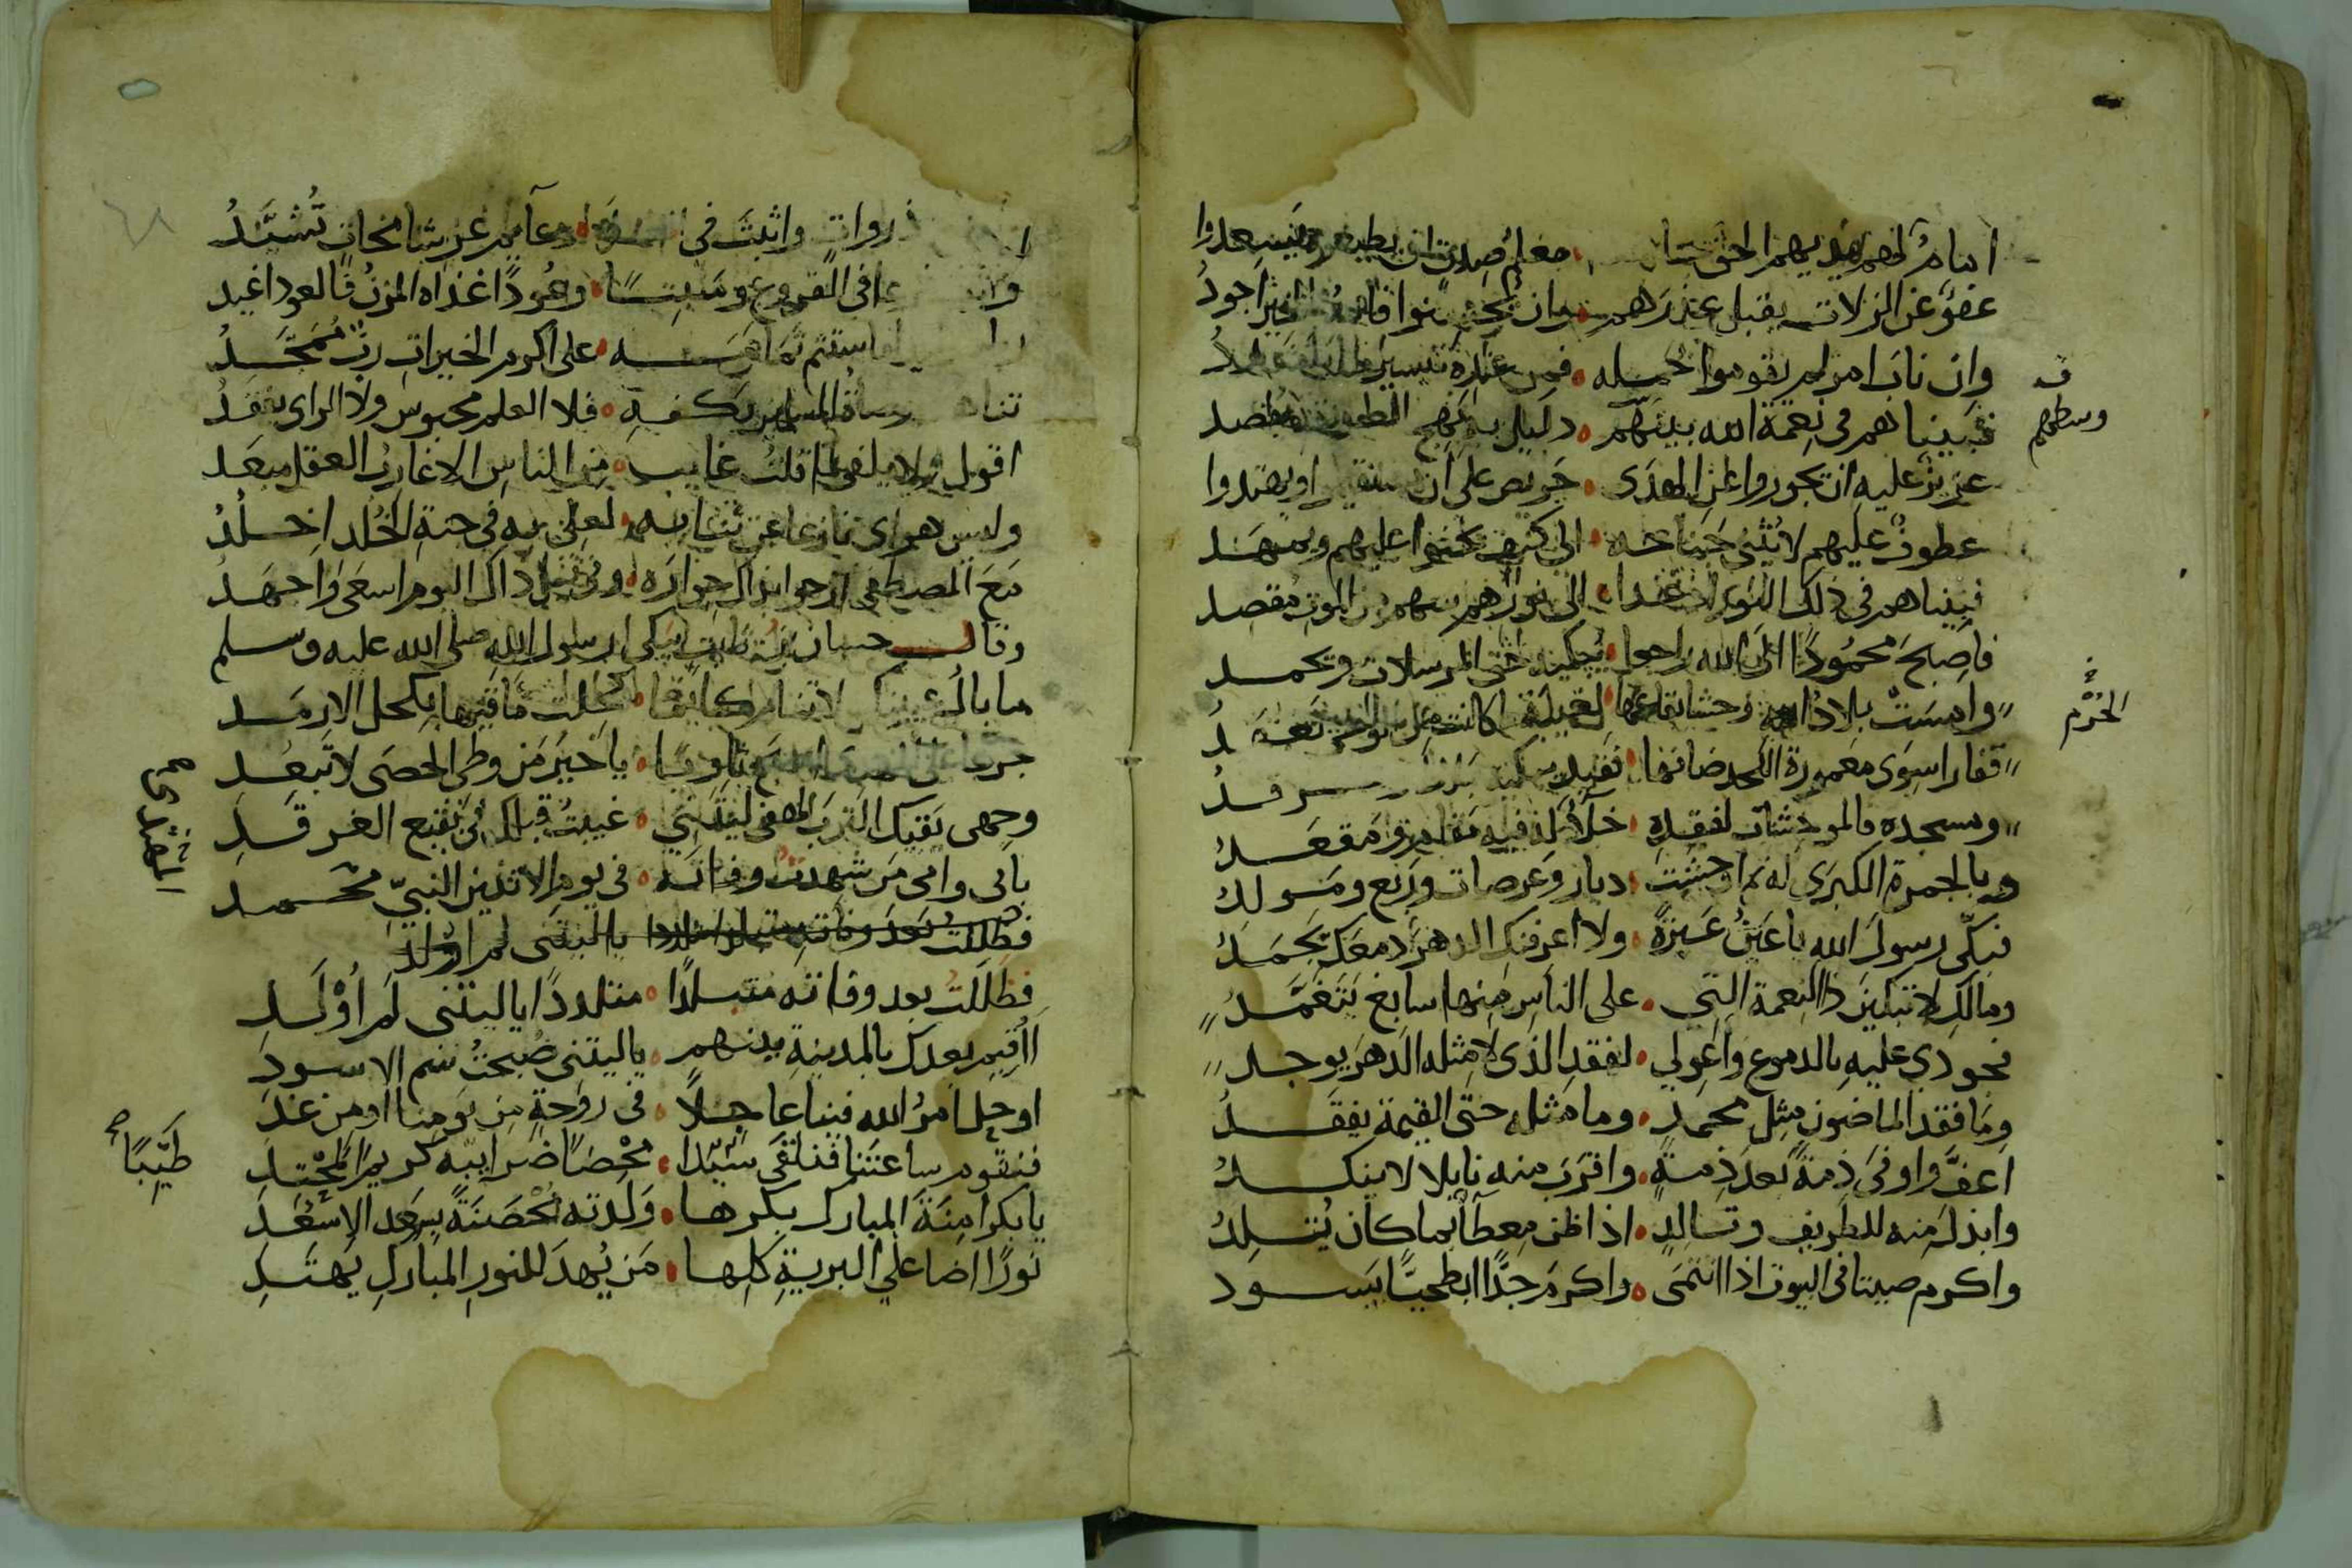 امامٌ لهم يهديهم الحق معلم صدق ان يطيعوه يسعدوا
عفوّ عن الزلات يقبل عذرهم وان يحسنوا فالله بالخير اجودُ
وان ناب امر لم يقوموا بحمله فمن عنده تيسير ما
فبينا هم في نعمة الله بينهم دليل به نهج الطريقة يقصد
وسطهم
عزيز عليه ان يجوروا عن الهدى حريص على ان او يهتدوا
عطوف عليهم لا يثني جناحه الى كنف يحنوا عليهم ويمهد
فبينا هم في ذلك النور اذ غدا الى نورهم سهم من الموت مقصد
فاصبح محمودًا الى الله راجعا يبكيه حتى المرسلات ويحمد
وامست بلاد وحشا بقاعها لغيبة ما كانت من الوحي تعهدُ
الحَرَم
قفارا سوى معمورة اللحد ضافها فقيد
ومسجده فالموحشات لفقده خلاءٌ له فيه مقام ومقعدُ
وبالجمرة الكبرى له ثم اوحشت ديار وعرصات وربع ومولد
فبكّي رسول الله يا عينُ عبرةً ولا اعرفنك الدهر دمعك يجمدُ
ومالك لا تبكين ذا النعمة التي على الناس منها سابغ يتغمدُ
فجودي عليه بالدموع واعولي لفقد الذي لا مثله الدهر يوجد
وما فقد الماضون مثل محمدٍ وما مثله حتى القيمة يفقدُ
اعفَّ واوفى ذمةً بعد ذمةٍ واقرب منه نايلا لا ينكدُ
وابذل منه للطريف وتالدٍ اذا ظن معطاٌ بما كان يتلدُ
واكرم صيتا في البيوت اذا انتمى واكرم جدًّا ابطحيًّا يسود
ذروات واثبت في دعايم عز شامخات تُشيّدُ
في الفروع ومنبتًا وعُودًا غذاه المزن فالعود اغيد
فاستتم تمامه على اكرم الخيرات ربٌ ممجّدُ
المسلمين بكفه فلا العلم محبوس ولا الراى يفندُ
اقول ولا يلفى لما قلت غايب من الناس الا عازب العقل مبعد
وليس هواى نازعا عن ثنايه لعلي به في جنة الخلد اخلدُ
مع المصطفى ارجوا بذاك جواره وفي نيل ذاك اليوم اسعى واجهد
وقال حسان بن ثابت يبكي رسول الله صلى الله عليه وسلم
ما بال عينك لا تنام كانما كحلت ماقيها بكحل الارمد
جزعا على المهدي اصبح ثاويًا يا خير من وطى الحصى لا تبعد
وجهى يقيك الترب لهفى ليتني غيبتُ قبلك في بقيع الغرقد
بابى وامى من شهدت وفاته في يوم الاثنين النبيّ محمد
المهتدي
فظللت بعد وفاته ياليتني لم اولد
فظللت بعد وفاته متبلدًا متلددًا ياليتني لم اُوْلَدِ
ااقيم بعدك بالمدينة بينهم ياليتني صُبحتُ سم الاسود
او حل امر الله فينا عاجلاً في روحةٍ من يومنا او من غد
فنقوم ساعتنا فنلقى سيّدا محضًا ضرايبه كريم المحتد
طَيِّبًا
يا بكر امنة المبارك بكرها ولدته محصنةً بسعد الاسعد
نورًا اضا على البرية كلها من يهد للنور المبارك يهتد